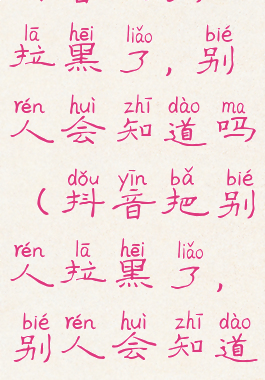 lā hēi liǎo bié
拉黑了，别
rén huì zhī dào ma
人会知道吗
dǒu yīn bǎ bié
（抖音把别
rén lā hēi liǎo
人拉黑了，
bié rén huì zhī dào
别人会知道